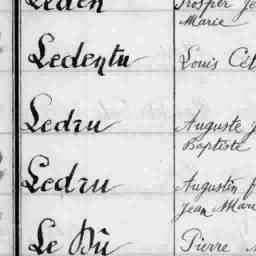 Leden Prosper
Marie
Ledentu Louis
Ledru Auguste
Baptiste
Ledru Augustin
Jean Marie
Le Dû Pierre